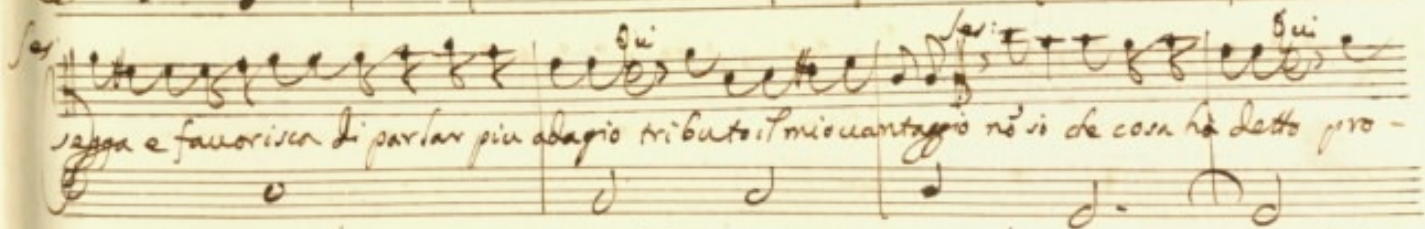 Ses: Qui Ses: Qui
segga e fauorisca di parlar piu adagio tributo il mio uantaggio nõ so che cosa hà detto pro-